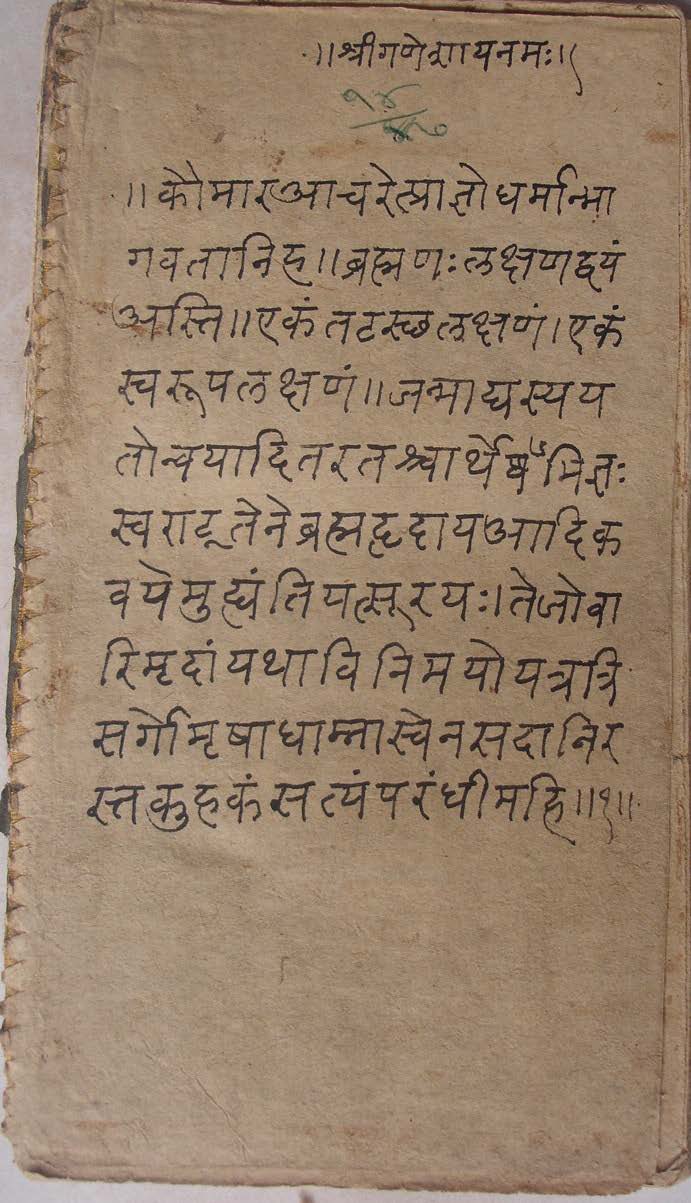 ॥श्रीगणेशायनमः॥
॥कौमारआचरेत्प्राज्ञोधर्मान्भा
गवतानिह॥ब्रह्मणःलक्षणद्वयं
अस्ति॥एकंतटस्छलक्षणं।एकं
स्वरूपलक्षणं॥जन्माद्यस्यय
तोन्वयादितरतश्चार्थेष्वभिज्ञः
स्वराट्तेनेब्रह्महृदायआदिक
वयेमुह्यंतियत्सूरयः।तेजोवा
रिमृदांयथाविनिमयोयत्रत्रि
सर्गोमृषाधाम्नास्वेनसदानिर
स्तकुहकंसत्यंपरंधीमहि॥१॥